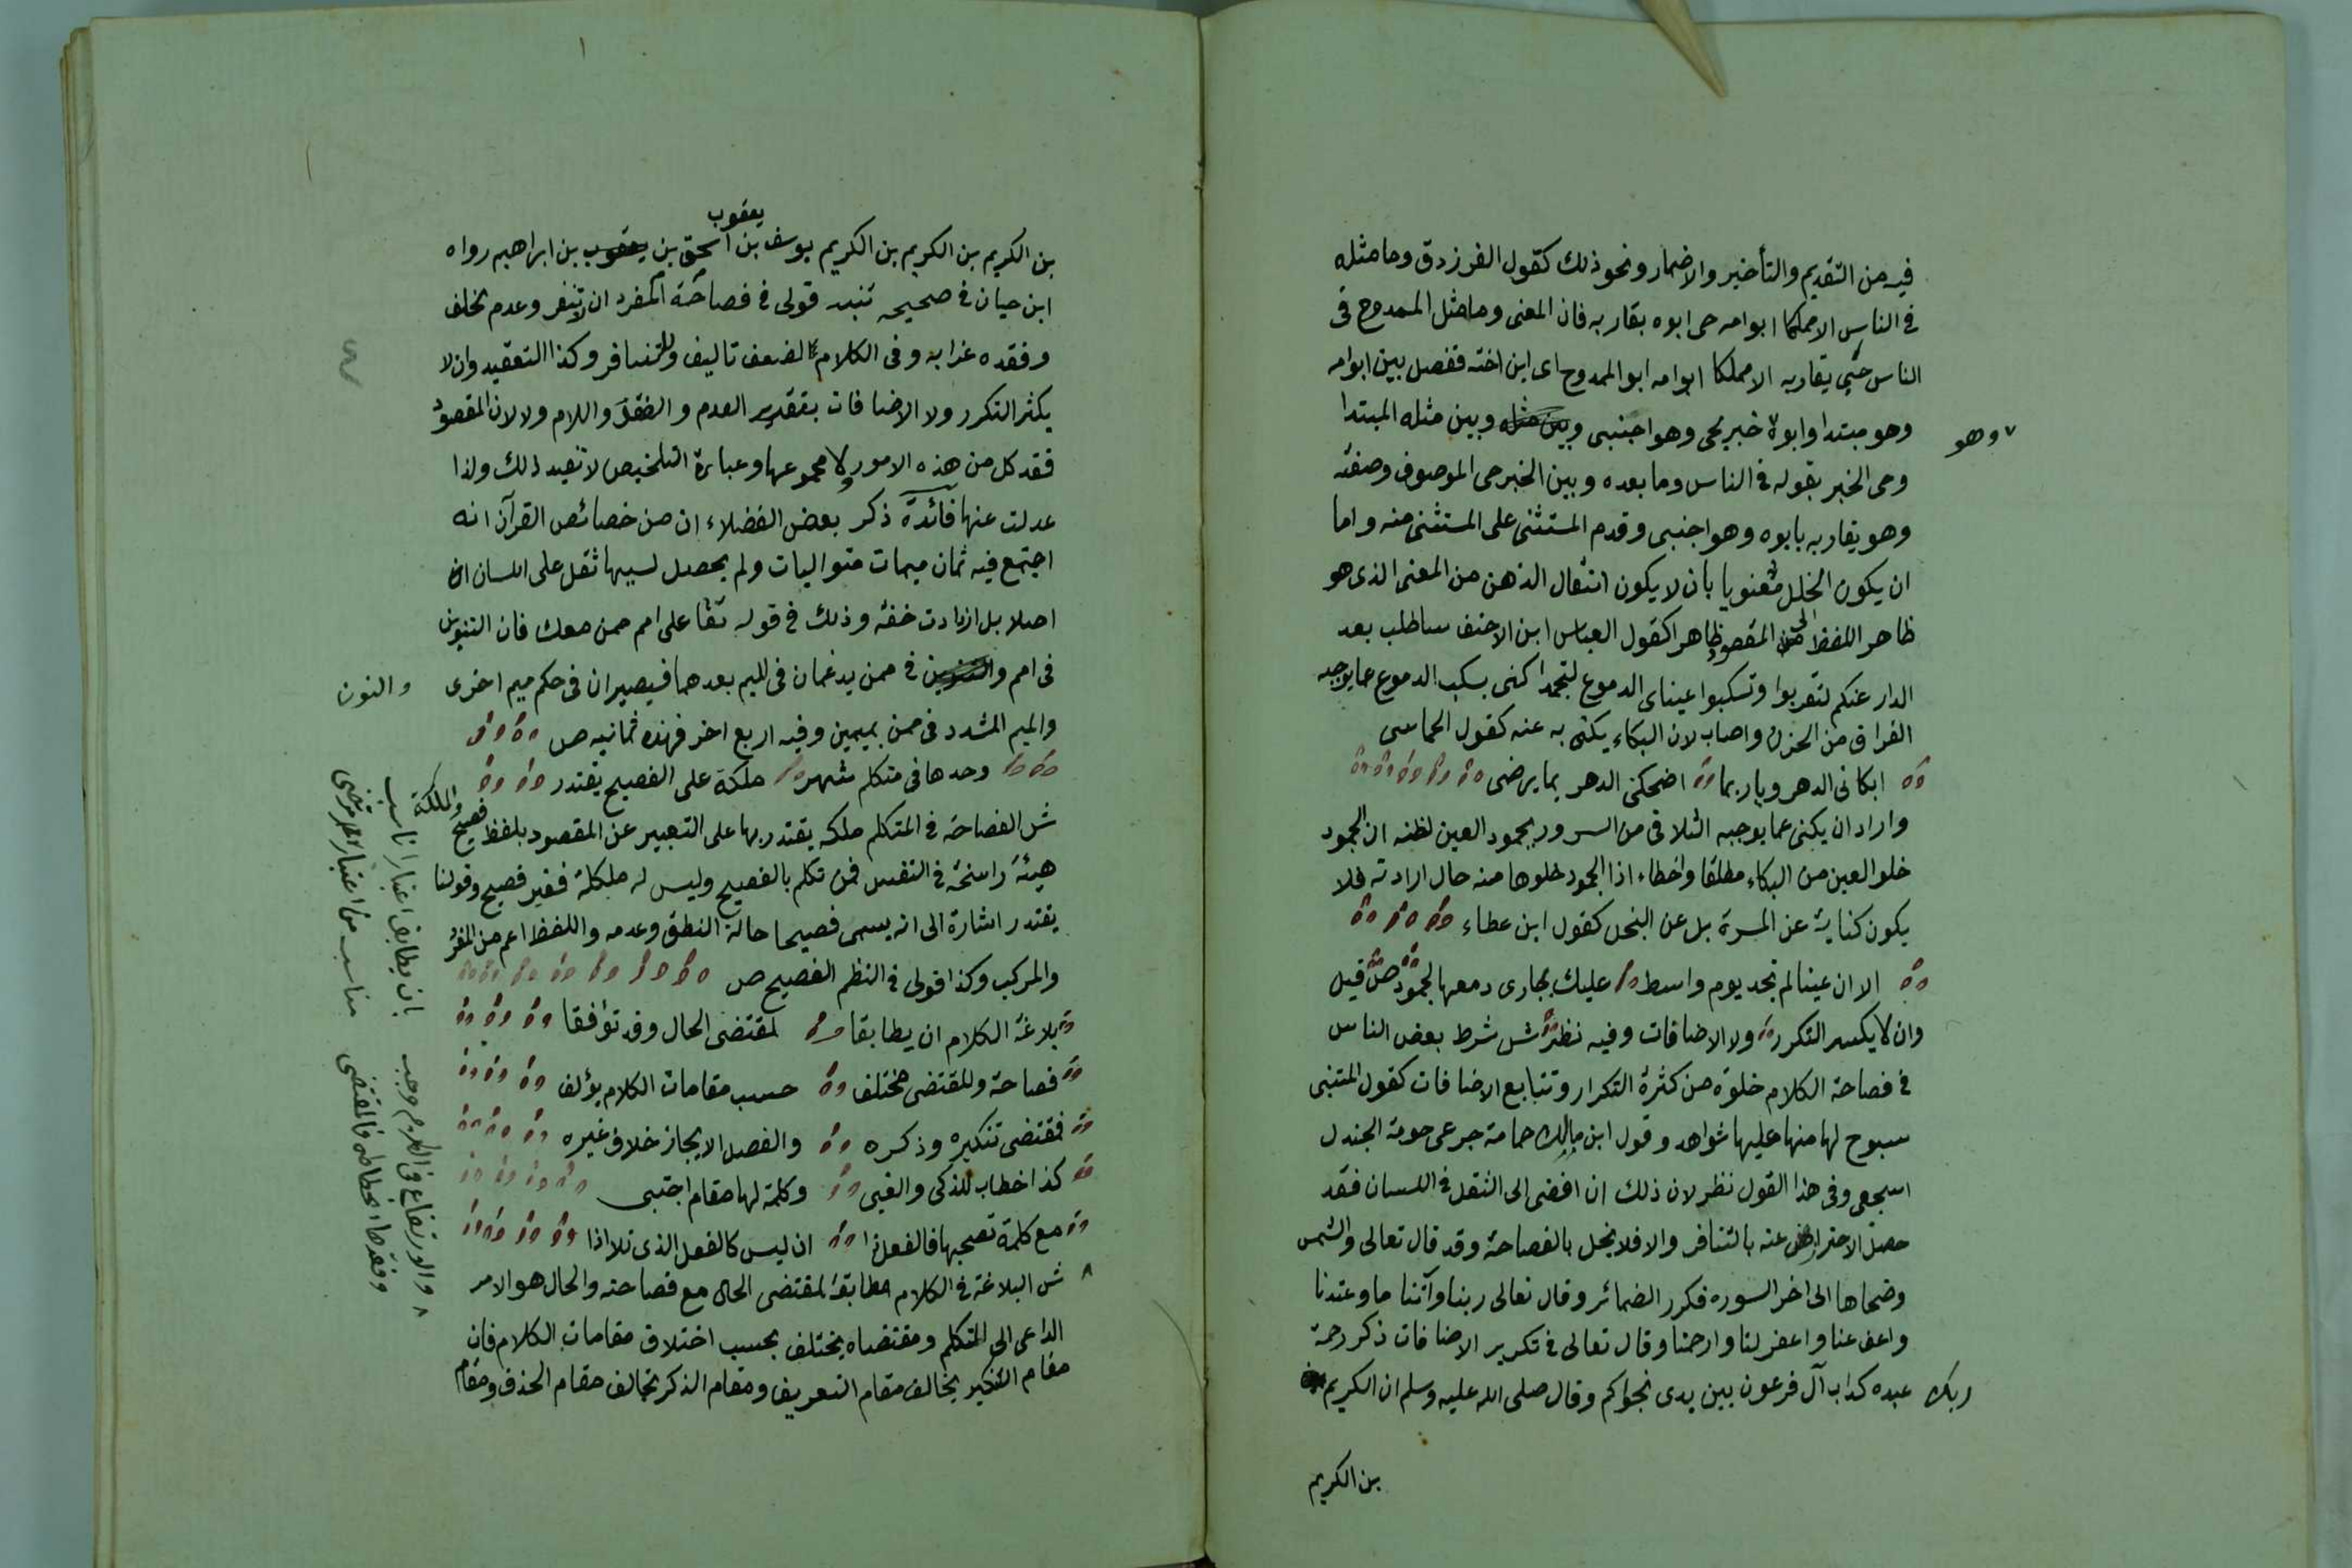 فيه من التقديم والتأخير والاضمار ونحو ذلك كقول الفرزدق وما مثله
في الناس الا مملكا ابو امه حي ابوه يقاربه فان المعنى وما مثل الممدوح في
الناس حي يقاربه الا مملكا ابو امه ابو الممدوح اى ابن اخته ففصل بين ابو امه
وهو مبتدا وابوه خبر بحى وهو اجنبى وبين مثله وبين مثله المبتدا
وهو
وحى الخبر بقوله في الناس وما بعده وبين الخبر حى الموصوف وصفته
وهو يقاربه بابوه وهو اجنبى وقدم المستثنى على المستثنى منه واما
ان يكون الخلل معنويا بان لا يكون انتقال الذهن من المعنى الذى هو
ظاهر اللفظ الى المقصود ظاهرا كقول العباس ابن الاحنف ساطلب بعد
الدار عنكم لتقربوا وتسكبوا عيناى الدموع لتجمدا كنى بسكب الدموع عما يوجبه
الفراق من الحزن واصاب لان البكاء يكنى به عنه كقول الحماسى
ابكانى الدهر ويا ربما اضحكنى الدهر بما يرضى
واراد ان يكنى عما يوجبه التلاقى من السرور بجمود العين لظنه ان الجمود
خلو العين من البكاء مطلقا واخطاء اذا الجمود خلوها منه حال ارادته فلا
يكون كناية عن المسرة بل عن البخل كقول ابن عطاء
الا ان عينا لم تجد يوم واسط عليك بجارى دمعها لجمود ص قيل
وان لا يكسر التكرر ولا الاضافات وفيه نظر ش شرط بعض الناس
في فصاحة الكلام خلوه من كثرة التكرار وتتابع الاضافات كقول المتنبى
سبوح لها منها عليها شواهد وقول ابن بابك حمامة جرعى حومة الجندل
اسجعى وفى هذا القول نظر لان ذلك ان افضى الى الثقل في اللسان فقد
حصل الاحتراز عنه بالتنافر والا فلا يخل بالفصاحة وقد قال تعالى والشمس
وضحاها الى اخر السوره فكرر الضمائر وقال تعالى ربنا وآتنا ما وعدتنا
واعف عنا واغفر لنا وارحمنا وقال تعالى في تكرير الاضافات ذكر رحمة
ربك عبده كداب آل فرعون بين يدى نجواكم وقال صلى الله عليه وسلم ان الكريم
بن الكريم
يعقوب
بن الكريم بن الكريم بن الكريم يوسف بن اسحق بن يعقوب بن ابراهيم رواه
ابن حبان في صحيحه تنبيه قولى في فصاحة المفرد ان لا تنفر وعدم تخلف
وفقده غرابه وفى الكلام لضعف تاليف وللتنافر وكذا التعقيد وان لا
يكثر التكرر ولا الاضافات بتقدير العدم والفقد واللام ولا لان المقصود
فقد كل من هذه الامور لا مجموعها وعبارة التلخيص لا تفيد ذلك ولذا
عدلت عنها فائدة ذكر بعض الفضلاء ان من خصائص القرآن انه
اجتمع فيه ثمان ميمات متواليات ولم يحصل لسببها ثقل على اللسان
اصلا بل ازدادت خفة وذلك في قوله تعا على امم ممن معك فان التنوين
في امم والنون في ممن يدغمان في الميم بعدهما فيصيران في حكم ميم اخرى
والنون
والميم المشدد في ممن بميمين وفيه اربع اخر فهذه ثمانيه ص
وحدها في متكلم شهر ملكة على الفصيح يقتدر
ش الفصاحة في المتكلم ملكه يقتدر بها على التعبير عن المقصود بلفظ فصيح والملكة
هيئة راسخة في النفس فمن تكلم بالفصيح وليس له ملكلة فغير فصيح وقولنا
يقتدر اشارة الى انه يسمى فصيحا حالة النطق وعدمه واللفظ اعم من المفرد
والمركب وكذا قولى في النظم الفصيح ص
بلاغة الكلام ان يطابقا لمقتضى الحال وقد توافقا
فصاحة وللمقتضى مختلف حسب مقامات الكلام يؤلف
فمقتضى تنكيره وذكره والفصل الايجاز خلاف غيره
كذا خطاب للذكى والغبى وكلمة لها مقام اجتبى
مع كلمة تصحبها فالفعل ذا ان ليس كالفعل الذى تلا اذا
ش البلاغة في الكلام مطابقة لمقتضى الحال مع فصاحته والحال هو الامر
الداعى الى المتكلم ومقتضاه يختلف بحسب اختلاف مقامات الكلام فان
مقام التنكير يخالف مقام التعريف ومقام الذكر يخالف مقام الحذف ومقام
والارتفاع في الكلام وجب بان يطابق اعتبارا ناسب
وفقدها انحطاطه فالمقتضى مناسب من اعتبار مرتضى